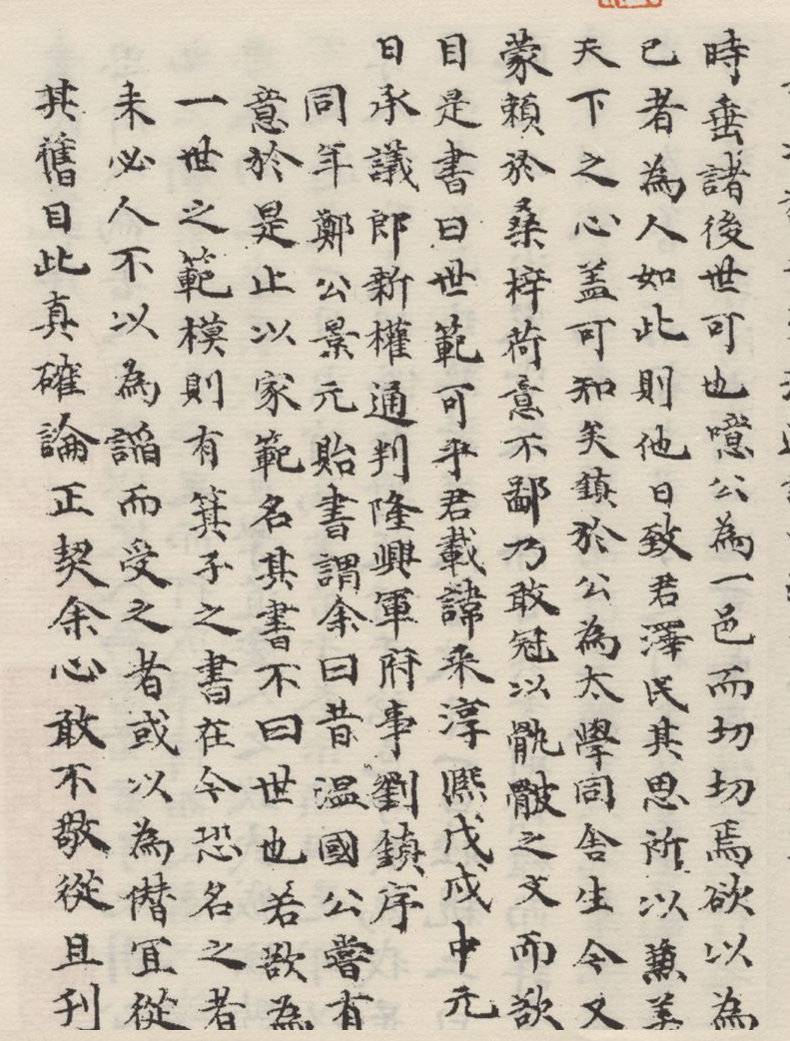 時垂諸後世可也噫公為一邑而切切焉欲以為
已者為人如此則他日致君澤民其思所以兼善
天下之心盖可知矣鎮於公為太學同舍生今又
蒙賴於桑梓荷意不鄙乃敢冠以骩骳之文而欲
目是書曰世範可乎君載諱采淳熙戊戌中元
日承議郎新權通判隆興軍府事劉鎮序
同年鄭公景元貽書謂余曰昔温國公嘗有
意於是止以家範名其書不曰世也若欲為
一世之範模則有箕子之書在今恐名之者
未必人不以為謟而受之者或以為僭宜從
其舊目此真確論正契余心敢不敬從且刋